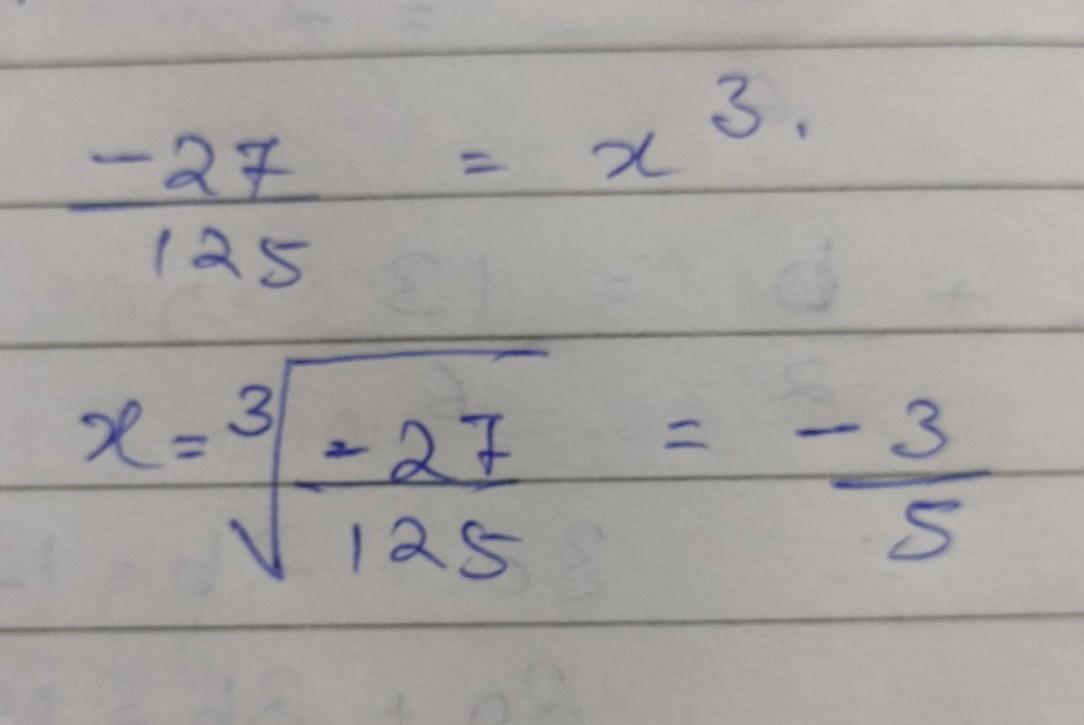 -27/125 = x³.
x = ∛(-27/125) = -3/5